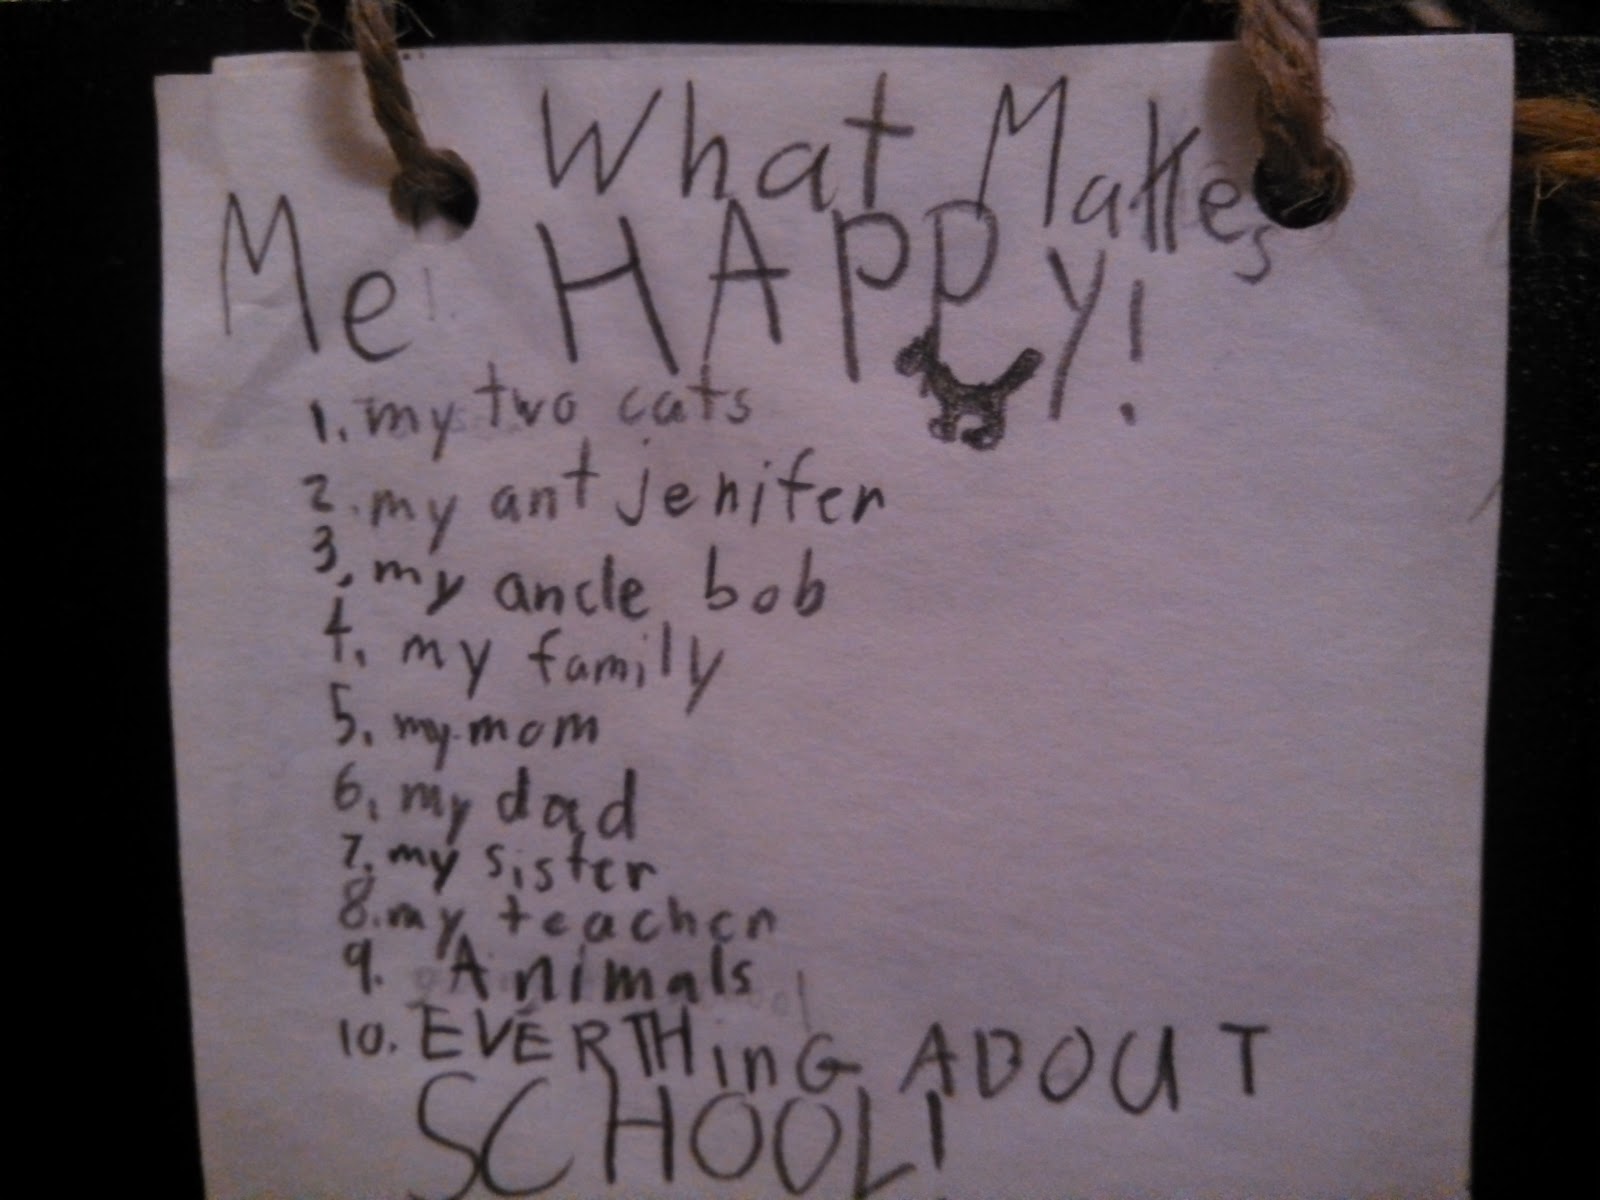 What Makes
Me HAPPY!
1. my two cats
2. my ant jenifer
3. my ancle bob
4. my family
5. my mom
6. my dad
7. my sister
8. my teacher
9. Animals
10. EVERTHinG ABOUT
SCHOOL!